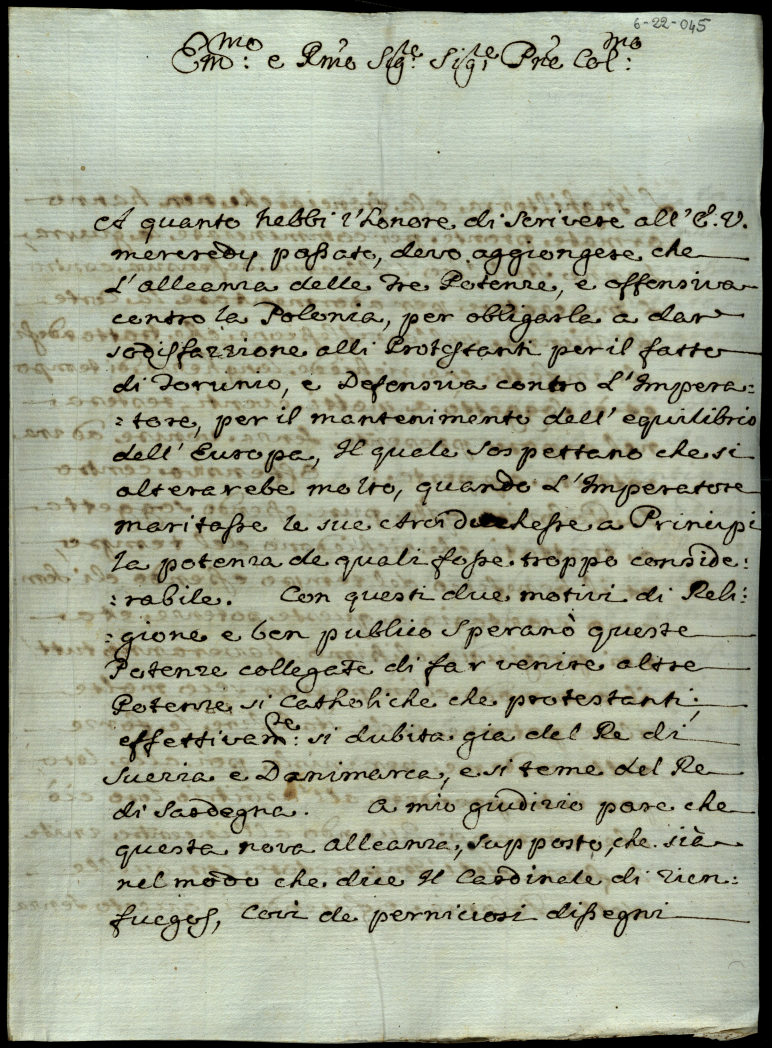 6-22-045
Em:mo e Rmo Sig:re Sig:re Pne Col:mo
A quanto hebbi l'honore di scrivere all' E. V.
mercredy passato, devo aggiongere che
L'alleanza delle tre Potenze, e offensiva
contro la Polonia, per obligarla a dar
sodisfazzione alli Protestanti per il fatto
di Torunio, e Defensiva contro L'Impera:
:tore, per il mantenimento dell' equilibrio
dell' Europa, Il quale sospettano che si
alterarebe molto, quando L'Imperatore
maritasse le sue Arciduchesse a Principi
la potenza de quali fosse troppo conside:
:rabile. Con questi due motivi di Reli:
:gione e ben publico sperano queste
Potenze collegate di far venire altre
Potenze si Catholiche che protestanti;
effettivam:te si dubita gia del Re di
Suezia e Danimarca, e si teme del Re
di Sardegna. A mio giudizio pare che
questa nova alleanza, supposto, che sia
nel modo che dice Il Cardinale di Cien:
fuegos, Covi de perniciosi dissegni